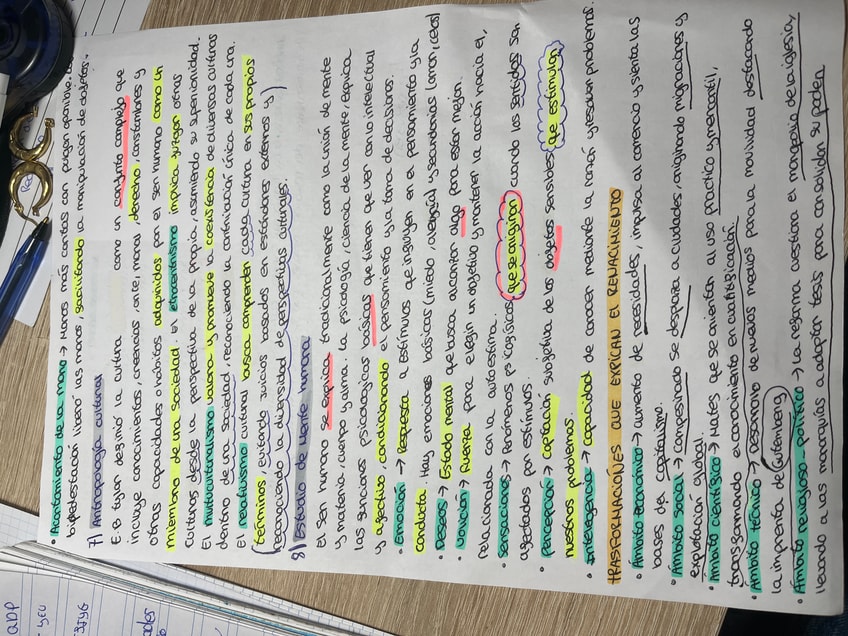 • Acortamiento de la mano → Manos más cortas con pulgar oponible. La
bipedestación liberó las manos, facilitando la manipulación de objetos.
7) Antropología cultural
E.B tylor definió la cultura como un conjunto complejo que
incluye conocimientos, creencias, arte, moral, derecho, costumbres y
otras capacidades o hábitos adquiridos por el ser humano como un
miembro de una sociedad. el etnocentrismo implica juzgar otras
culturas desde la perspectiva de la propia, asumiendo su superioridad.
El multiculturalismo valora y promueve la coexistencia de diversas culturas
dentro de una sociedad, reconociendo la contribución única de cada una.
El relativismo cultural busca comprender cada cultura en sus propios
términos, evitando juicios basados en estándares externos y
reconociendo la diversidad de perspectivas culturales.
8) Estudio de Mente humana
el ser humano se explica tradicionalmente como la unión de mente
y materia, cuerpo y alma. La psicología, ciencia de la mente, explica
las funciones psicológicas básicas que tienen que ver con lo intelectual
y afectivo, condicionando el pensamiento y la toma de decisiones.
• Emoción → Respuesta a estímulos que influyen en el pensamiento y la
conducta. Hay emociones básicas (miedo, alegría) y secundarias (amor, celos)
• Deseos → Estado mental que busca alcanzar algo para estar mejor.
• Volición → Fuerza para elegir un objetivo y mantener la acción hacia el,
relacionada con la autoestima.
• Sensaciones → Fenómenos psicológicos que se originan cuando los sentidos son
afectados por estímulos.
• Percepción → Captación subjetiva de los objetos sensibles que estimulan
nuestros problemas.
• Inteligencia → Capacidad de conocer mediante la razón y resolver problemas.
TRASFORMACIÓNES QUE EXPLICAN EL RENACIMIENTO
• Ámbito económico → aumento de necesidades, impulsa al comercio y sienta las
bases del capitalismo.
• Ámbito social → Campesinado se desplaza a ciudades, originando migraciones y
explotación global.
• Ámbito científico → Nuevos que se orientan al uso práctico y mercantil,
transformando el conocimiento en cuantificación.
• Ámbito técnico → Desarrollo de nuevos medios para la movilidad destacando
la imprenta de Gutemberg
• Ámbito religioso-político → La reforma cuestiona el monopolio de la iglesia,
llevando a las monarquías a adoptar tesis para consolidar su poder.